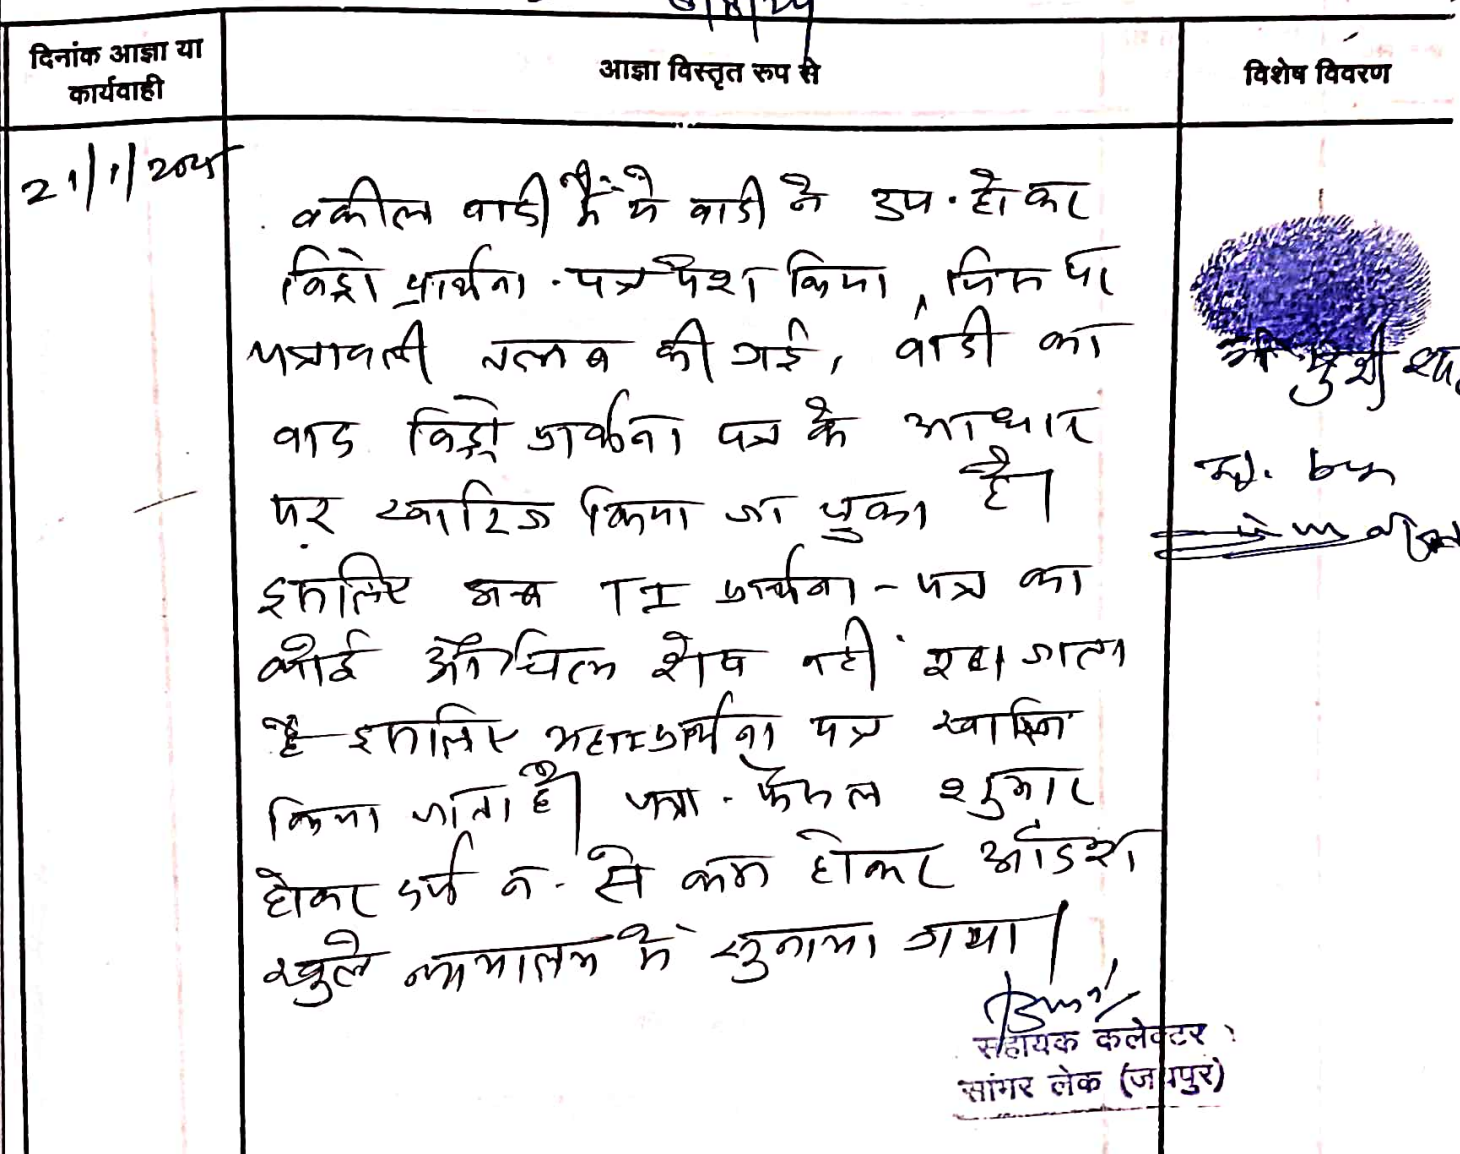 दिनांक आज्ञा या
कार्यवाही
आज्ञा विस्तृत रूप से
विशेष विवरण
21/1/2025
वकील वादी मैं ने वादी ने उप. होकर
विड्रो प्रार्थना-पत्र पेश किया, जिस पर
पत्रावली तलब की गई, वादी का
वाद विड्रो प्रार्थना पत्र के आधार
पर खारिज किया जा चुका है।
इसलिए अब TI प्रार्थना-पत्र का
कोई औचित्य शेष नहीं रह जाता
है इसलिए प्रार्थना पत्र खारिज
किया जाता है। पत्रा. फैसल शुमार
होकर दर्ज न. से कम होकर आदेश
खुले न्यायालय में सुनाया गया।
सहायक कलेक्टर
सांभर लेक (जयपुर)